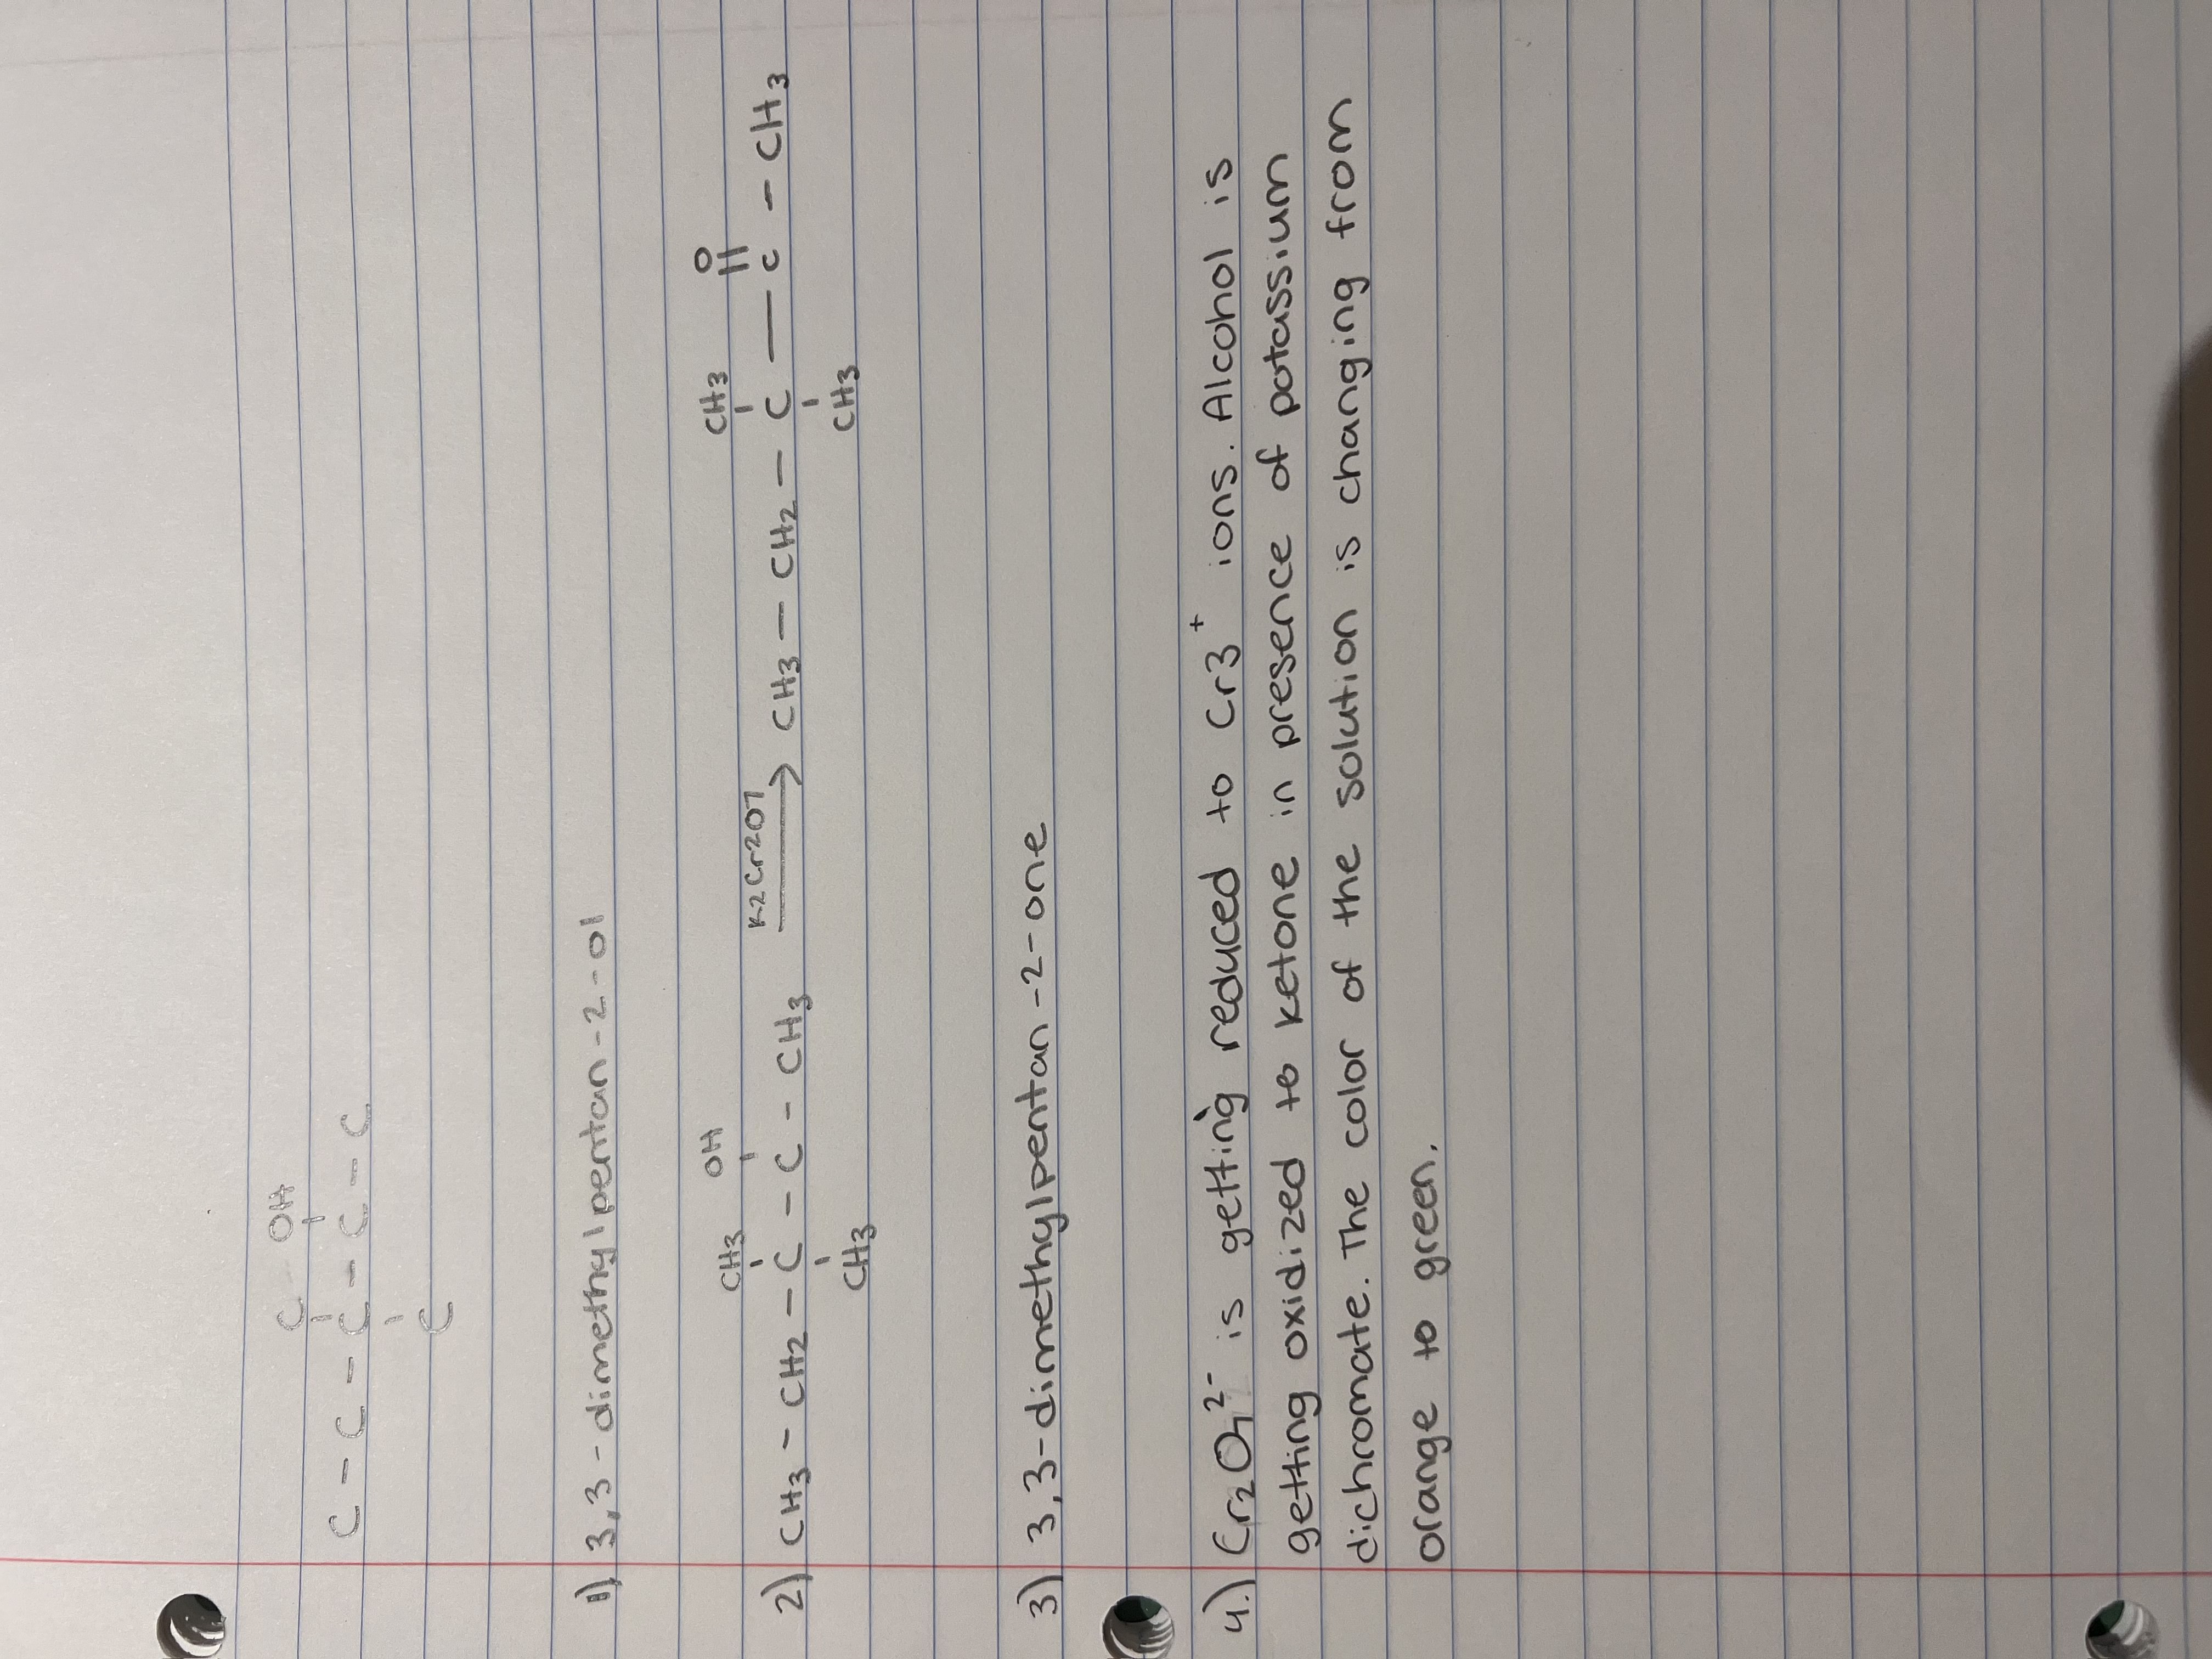 C OH
C - C - C - C - C
C
1) 3,3-dimethylpentan-2-ol
CH3 OH K2Cr2O7 CH3 O
2) CH3 - CH2 - C - C - CH3 → CH3 - CH2 - C - C - CH3
CH3 CH3
3) 3,3-dimethylpentan-2-one
4.) Cr2O7^2- is getting reduced to Cr3^+ ions. Alcohol is
getting oxidized to ketone in presence of potassium
dichromate. The color of the solution is changing from
orange to green.